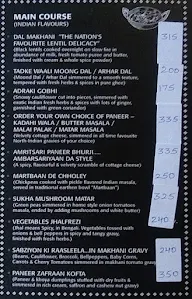 MAIN COURSE
(INDIAN FLAVOURS)
DAL MAKHANI "THE NATION'S 315
FAVOURITE LENTIL DELICACY"
(Black lentils cooked overnight on slow fire in
abundance of milk, fresh tomato puree and butter,
finished with cream & whole spice powder)
TADKE WAALI MOONG DAL / ARHAR DAL 200
(Moong Dal / Arhar Dal simmered to a smooth texture,
tempered with fresh herbs & spices in pure ghee)
ADRAKI GOBHI
(Snowy cauliflower cut into pieces, simmered with
exotic indian fresh herbs & spices with lots of ginger,
garnished with green coriander)
ORDER YOUR OWN CHOICE OF PANEER – 335
KADAHI WALA / BUTTER MASALA /
MALAI PALAK / MATAR MASALA
(Velvety cottage cheese, simmered in all time favourite
North-Indian gravies of your choice)
AMRITSARI PANEER BHURJI..... 335
AMBARSARIYAAN DA STYLE
(A spicy, flavourful & velvety scramble of cottage cheese)
MARTBAAN DE CHHOLEY 250
(Chickpeas cooked with pickle flavored Indian masala,
served in traditional earthern bowl "Martbaan")
SUKHA MUSHROOM MATAR 325
(Green peas simmered in home style onion tomatoes
masala, ended by adding mushrooms and white butter)
VEGETABLES JHALFREZI 240
(Thai means Spicy, in Bengali. Vegetables tossed with
onions & bell peppers in spicy and tangy gravy,
finished with fresh herbs)
SABZIYON KI RAASLEELA..IN MAKHANI GRAVY 240
(Beans, Cauliflower, Broccoli, Bellpeppers, Baby Corns,
Carrots & Cherry Tomatoes simmered in makhani tomato gravy)
PANEER ZAFRAAN KOFTA 350
(Paneer & khoya dumplings stuffed with dry fruits &
simmered in rich cream, saffron and cashew nut gravy)